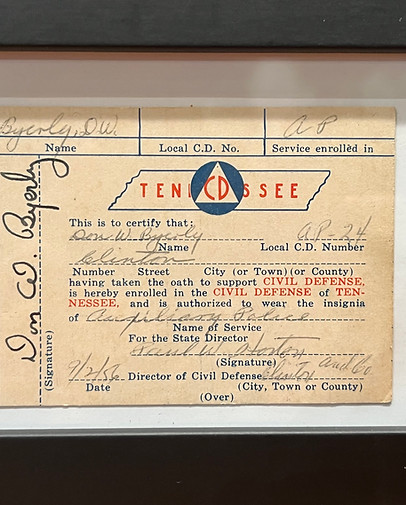 Byerly, D.W. AP
Name Local C.D. No. Service enrolled in
TENNESSEE
CD
This is to certify that:
Don W. Byerly AP-24
Name Local C.D. Number
Clinton
Number Street City (or Town) (or County)
having taken the oath to support CIVIL DEFENSE,
is hereby enrolled in the CIVIL DEFENSE of TEN-
NESSEE, and is authorized to wear the insignia
of Auxiliary Police
Name of Service
For the State Director
Paul W. Horton
(Signature)
9/2/56 Director of Civil Defense Clinton And Co
Date (City, Town or County)
(Over)
Don W Byerly
(Signature)